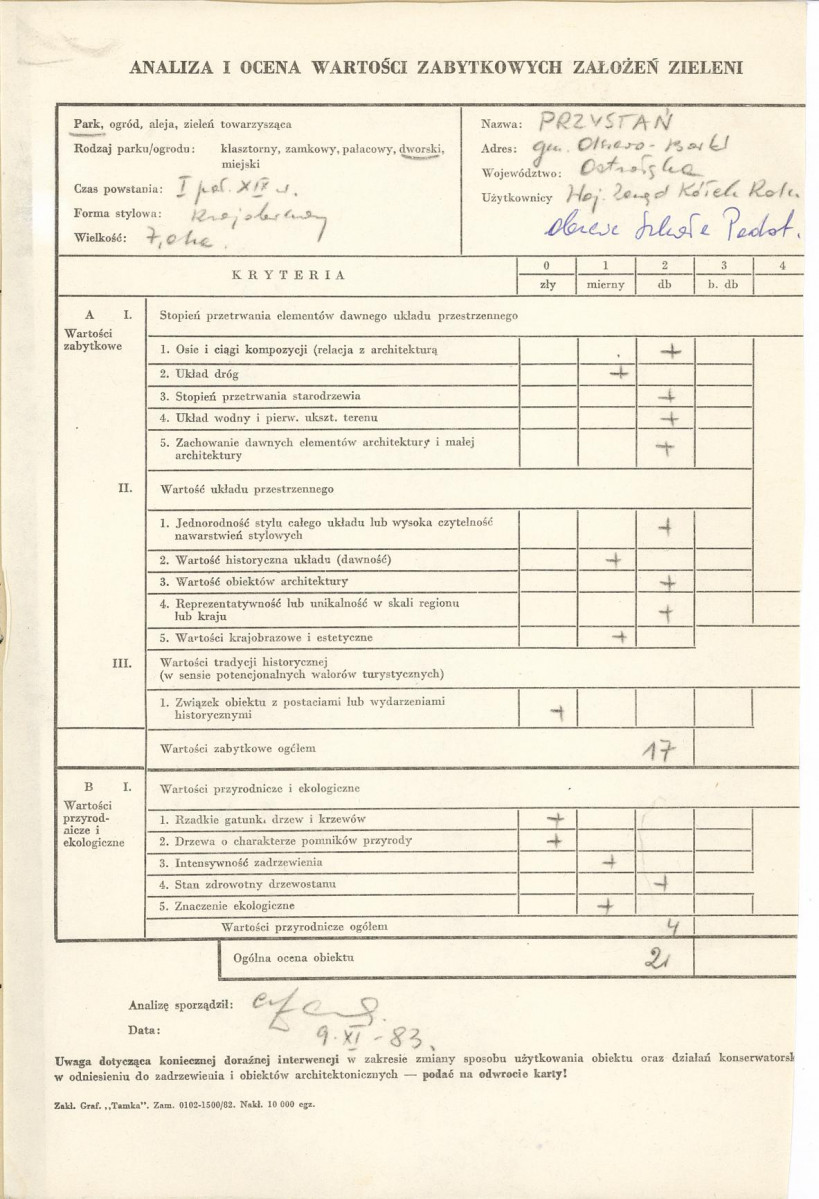 ANALIZA I OCENA WARTOŚCI ZABYTKOWYCH ZAŁOŻEŃ ZIELENI
Park, ogród, aleja, zieleń towarzysząca
Rodzaj parku/ogrodu: klasztorny, zamkowy, pałacowy, dworski,
miejski
Czas powstania: I poł. XIX w.
Forma stylowa: Krajobrazowy
Wielkość: 7,0 ha.
Nazwa: PRZYSTAŃ
Adres: gm. Olszewo-Borki
Województwo: Ostrołęka
Użytkownicy Woj. Zarząd Kółek Roln.
obecnie Szkoła Podst.
KRYTERIA
0 1 2 3 4
zły mierny db b. db
A I. Stopień przetrwania elementów dawnego układu przestrzennego
Wartości
zabytkowe
1. Osie i ciągi kompozycji (relacja z architekturą +
2. Układ dróg +
3. Stopień przetrwania starodrzewia +
4. Układ wodny i pierw. ukszt. terenu +
5. Zachowanie dawnych elementów architektury i małej
architektury +
II. Wartość układu przestrzennego
1. Jednorodność stylu całego układu lub wysoka czytelność
nawarstwień stylowych +
2. Wartość historyczna układu (dawność) +
3. Wartość obiektów architektury +
4. Reprezentatywność lub unikalność w skali regionu
lub kraju +
5. Wartości krajobrazowe i estetyczne +
III. Wartości tradycji historycznej
(w sensie potencjonalnych walorów turystycznych)
1. Związek obiektu z postaciami lub wydarzeniami
historycznymi +
Wartości zabytkowe ogółem 17
B I. Wartości przyrodnicze i ekologiczne
Wartości
przyrod-
nicze i
ekologiczne
1. Rzadkie gatunki drzew i krzewów +
2. Drzewa o charakterze pomników przyrody +
3. Intensywność zadrzewienia +
4. Stan zdrowotny drzewostanu +
5. Znaczenie ekologiczne +
Wartości przyrodnicze ogółem 4
Ogólna ocena obiektu 21
Analizę sporządził:
Data: 9.XI-83.
Uwaga dotycząca koniecznej doraźnej interwencji w zakresie zmiany sposobu użytkowania obiektu oraz działań konserwatorsk
w odniesieniu do zadrzewienia i obiektów architektonicznych — podać na odwrocie karty!
Zakł. Graf. „Tamka". Zam. 0102-1500/82. Nakł. 10 000 egz.